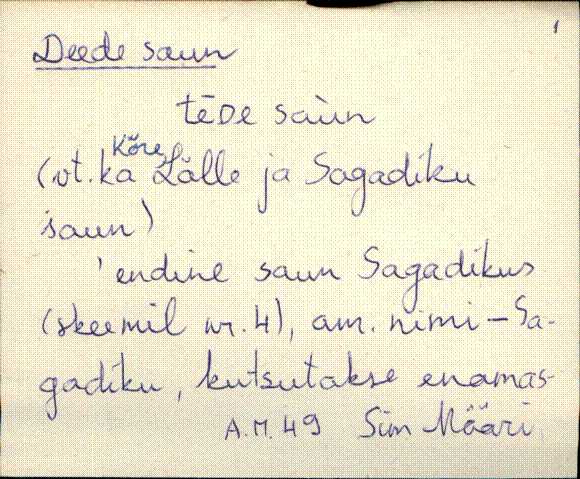 1
Deede saun
tēDe saùn
(vt. ka Kõre, Lälle ja Sagadiku
saun)
'endine saun Sagadikus
(skeemil nr. 4), am. nimi – Sa-
gadiku, kutsutakse enamas-
A.M. 49 Siim Määri